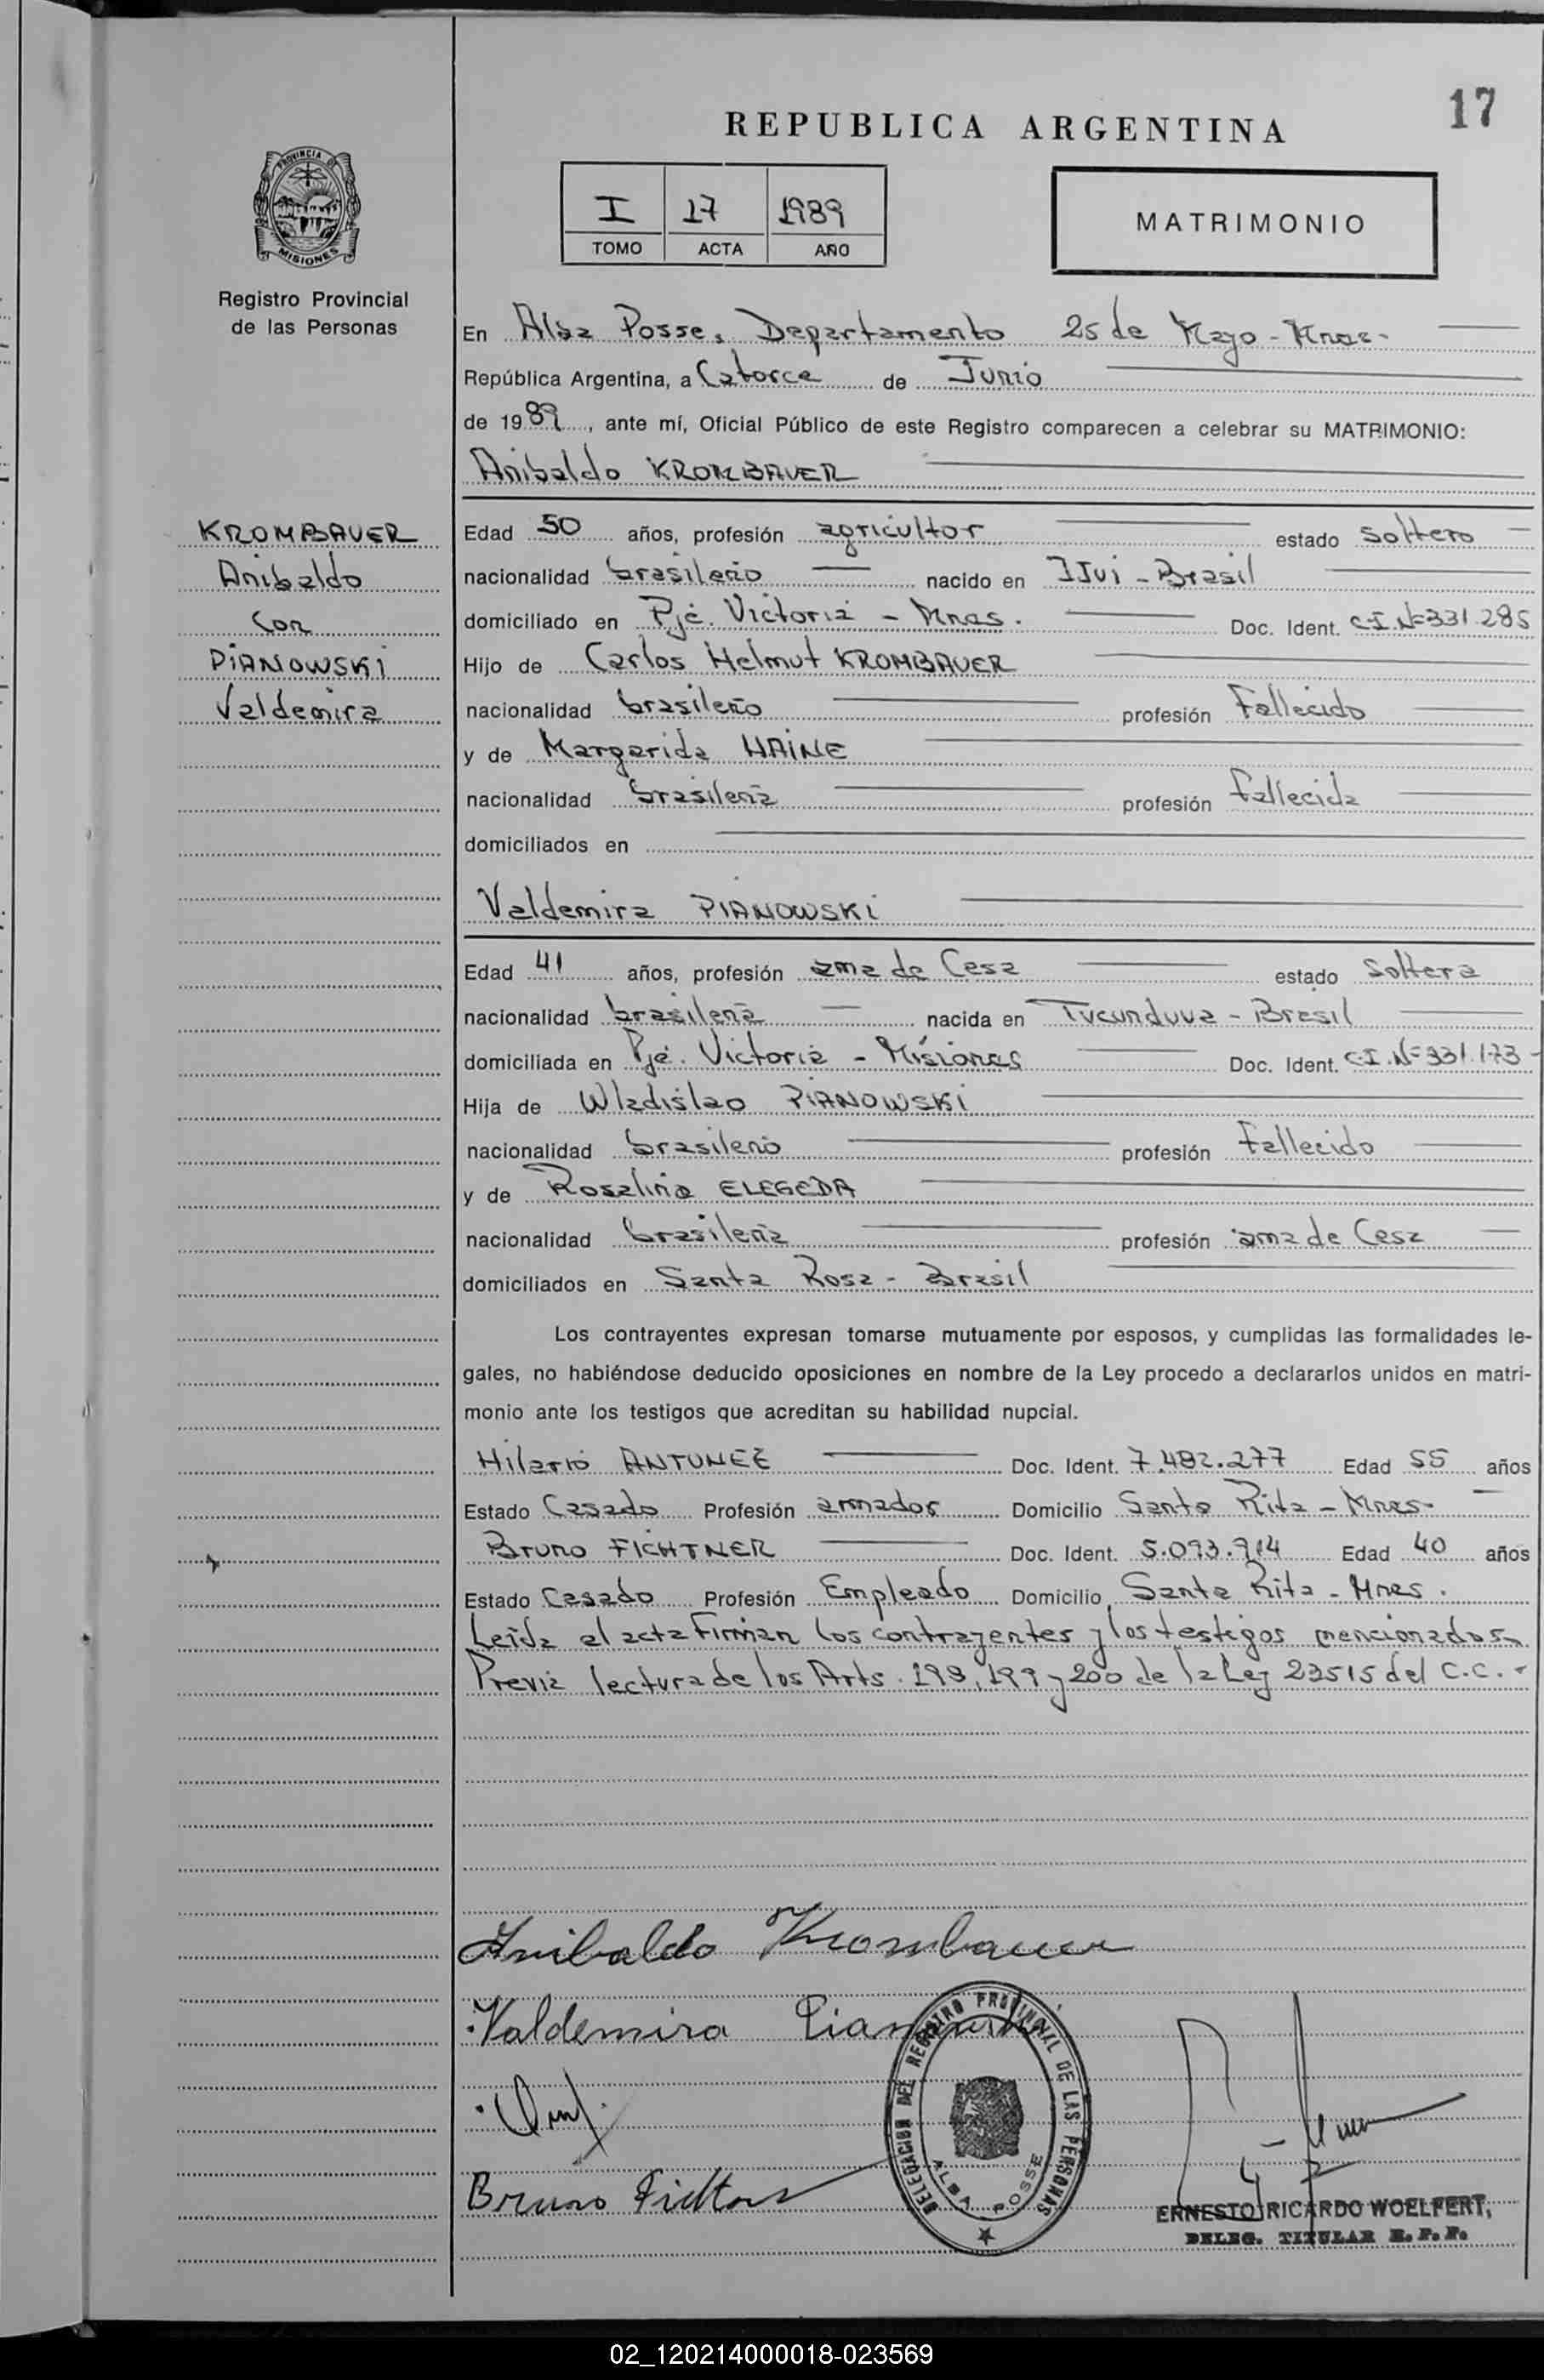 17
REPUBLICA ARGENTINA
I 17 1989
TOMO ACTA AÑO
MATRIMONIO
PROVINCIA DE
MISIONES
Registro Provincial
de las Personas
KROMBAUER
Anibaldo
Con
PIANOWSKI
Valdemira
En Alba Posse, Departamento 25 de Mayo - Mnes-
República Argentina, a Catorce de Junio
de 1989, ante mí, Oficial Público de este Registro comparecen a celebrar su MATRIMONIO:
Anibaldo KROMBAUER
Edad 50 años, profesión agricultor estado Soltero
nacionalidad brasileño nacido en IJui - Brasil
domiciliado en Pje. Victoria - Mnes. Doc. Ident. C.I. Nº 331.285
Hijo de Carlos Helmut KROMBAUER
nacionalidad brasileño profesión Fallecido
y de Margarida HAINE
nacionalidad brasileña profesión Fallecida
domiciliados en
Valdemira PIANOWSKI
Edad 41 años, profesión ama de Casa estado Soltera
nacionalidad brasileña nacida en Tucunduva - Brasil
domiciliada en Pje. Victoria - Misiones Doc. Ident. C.I. Nº 331.173-
Hija de Wladislao PIANOWSKI
nacionalidad brasileño profesión Fallecido
y de Rosalina ELEGEDA
nacionalidad brasileña profesión ama de Casa
domiciliados en Santa Rosa - Brasil
Los contrayentes expresan tomarse mutuamente por esposos, y cumplidas las formalidades le-
gales, no habiéndose deducido oposiciones en nombre de la Ley procedo a declararlos unidos en matri-
monio ante los testigos que acreditan su habilidad nupcial.
Hilario ANTUNEZ Doc. Ident. 7.482.277 Edad 55 años
Estado Casado Profesión armador Domicilio Santa Rita - Mnes-
Bruno FICHTNER Doc. Ident. 5.093.914 Edad 40 años
Estado Casado Profesión Empleado Domicilio Santa Rita - Mnes.
Leída el acta Firman los contrayentes y los testigos mencionados.
Previa lectura de los Arts. 198, 199 y 200 de la Ley 23515 del C.C.-
Anibaldo Krombauer
Valdemira Pianowski
Bruno Fichtner
DELEGACION DEL REGISTRO PROVINCIAL DE LAS PERSONAS
ALBA POSSE
ERNESTO RICARDO WOELFERT,
DELEG. TITULAR R. P. P.
02_120214000018-023569